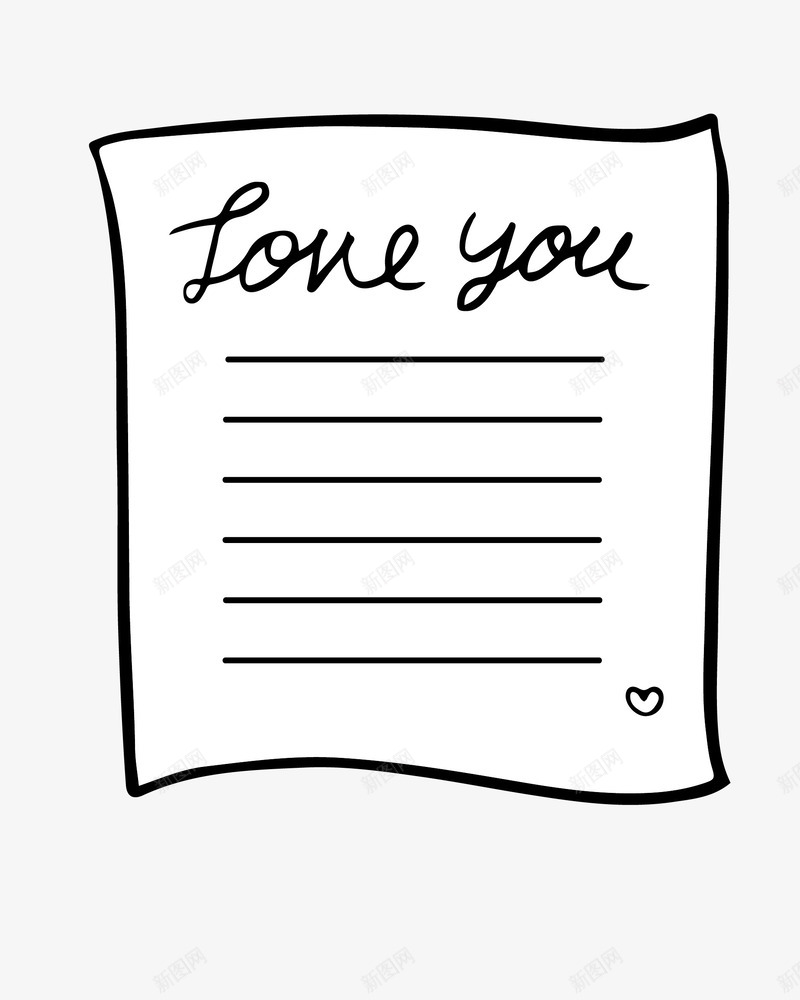 Love you
新图网